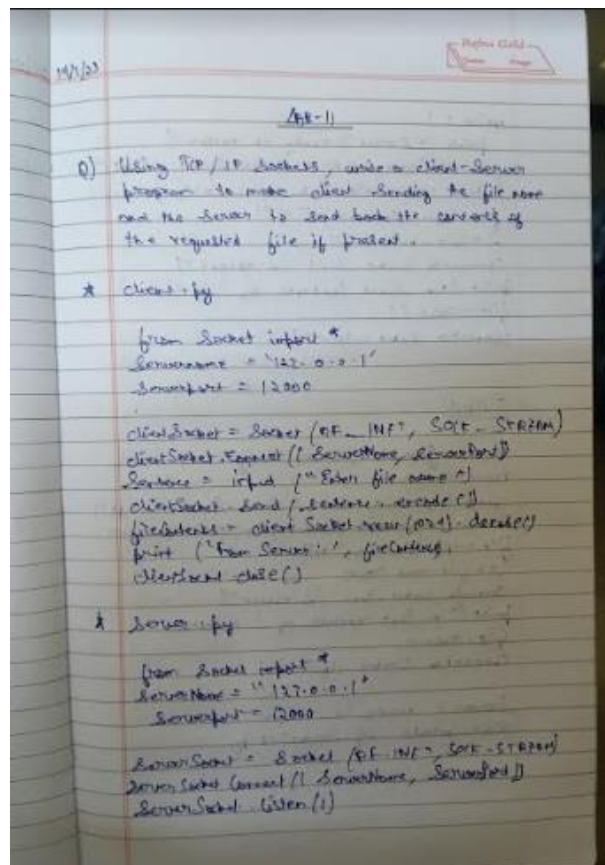 LAB-11
Q) Using TCP/IP Sockets, write a client-Server
program to make client Sending the file name
and the Server to send back the contents of
the requested file if present.
* client.py
from Socket import *
Servername = '127.0.0.1'
Serverport = 12000
clientSocket = Socket (AF_INET, SOCK_STREAM)
clientSocket.connect(( ServerName, ServerPort))
Sentence = input ("Enter file name")
clientSocket.send(sentence.encode())
filecontents = client Socket.recv(1024).decode()
print ('From Server:', filecontents)
clientSocket.close()
* Server.py
from Socket import *
ServerName = "127.0.0.1"
Serverport = 12000
ServerSocket = Socket (AF_INET, SOCK_STREAM)
Server Socket Connect (( ServerName, ServerPort))
ServerSocket.listen(1)